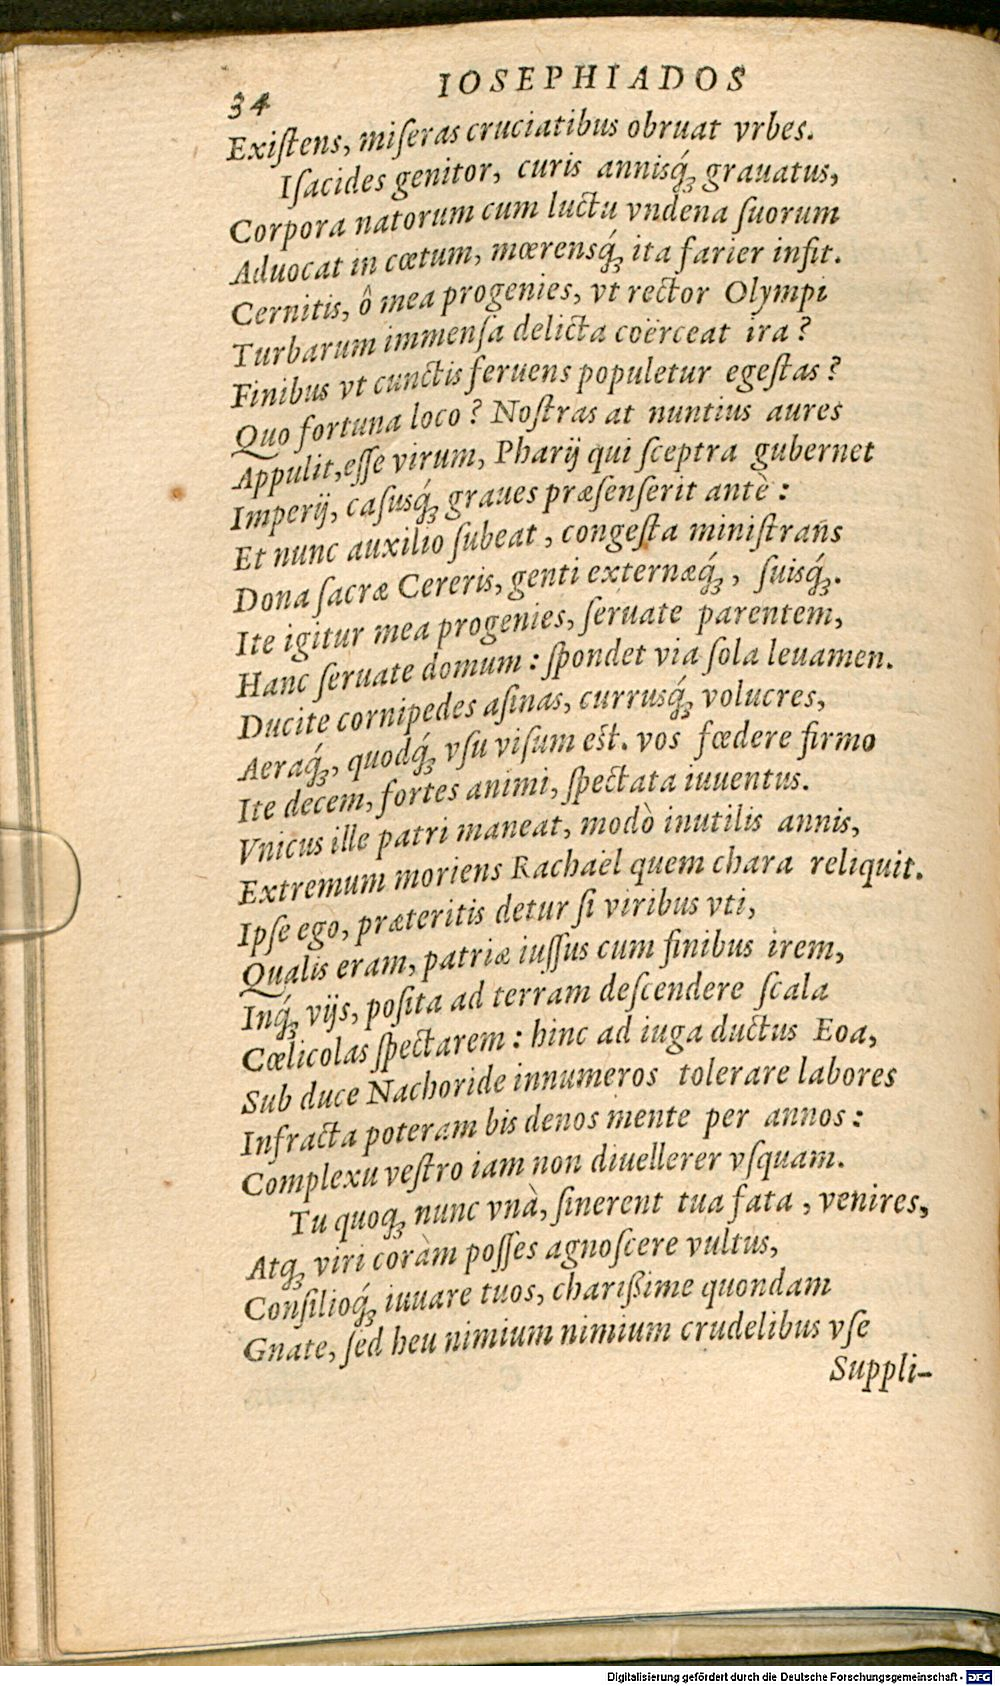 34
IOSEPHIADOS
Exiſtens, miſeras cruciatibus obruat vrbes.
Iſacides genitor, curis annisq́ꝫ grauatus,
Corpora natorum cum luctu vndena ſuorum
Aduocat in cœtum, mœrensq́ꝫ ita farier infit.
Cernitis, ô mea progenies, vt rector Olympi
Turbarum immenſa delicta coërceat ira?
Finibus vt cunctis feruens populetur egeſtas?
Quo fortuna loco? Noſtras at nuntius aures
Appulit, eſſe virum, Pharij qui ſceptra gubernet
Imperij, caſusq́ꝫ graues præſenſerit antè:
Et nunc auxilio ſubeat, congeſta miniſtrans
Dona ſacræ Cereris, genti externæq́ꝫ, ſuisq́ꝫ.
Ite igitur mea progenies, ſeruate parentem,
Hanc ſeruate domum: ſpondet via ſola leuamen.
Ducite cornipedes aſinas, currusq́ꝫ volucres,
Aeraq́ꝫ, quodq́ꝫ vſu viſum eſt. vos fœdere firmo
Ite decem, fortes animi, ſpectata iuuentus.
Vnicus ille patri maneat, modò inutilis annis,
Extremum moriens Rachaël quem chara reliquit.
Ipſe ego, præteritis detur ſi viribus vti,
Qualis eram, patriæ iuſſus cum finibus irem,
Inq́ꝫ vijs, poſita ad terram deſcendere ſcala
Cœlicolas ſpectarem: hinc ad iuga ductus Eoa,
Sub duce Nachoride innumeros tolerare labores
Infracta poteram bis denos mente per annos:
Complexu veſtro iam non diuellerer vſquam.
Tu quoqꝫ nunc vnà, ſinerent tua fata, venires,
Atqꝫ viri coràm poſſes agnoſcere vultus,
Conſilioq́ꝫ iuuare tuos, charißime quondam
Gnate, ſed heu nimium nimium crudelibus vſe
Suppli-
Digitalisierung gefördert durch die Deutsche Forschungsgemeinschaft - DFG